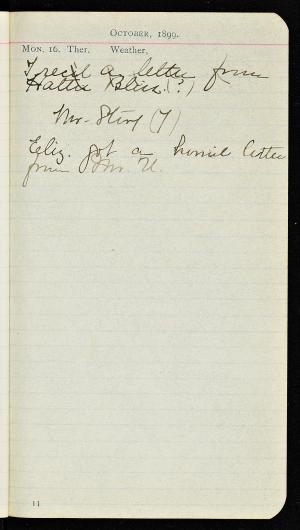 October, 1899.
Mon. 16. Ther. Weather.
I rec'd a letter from
Hattie Bliss. (?)
Mr. (7)
Eliz. got a horrid letter
from Mr. U.
11